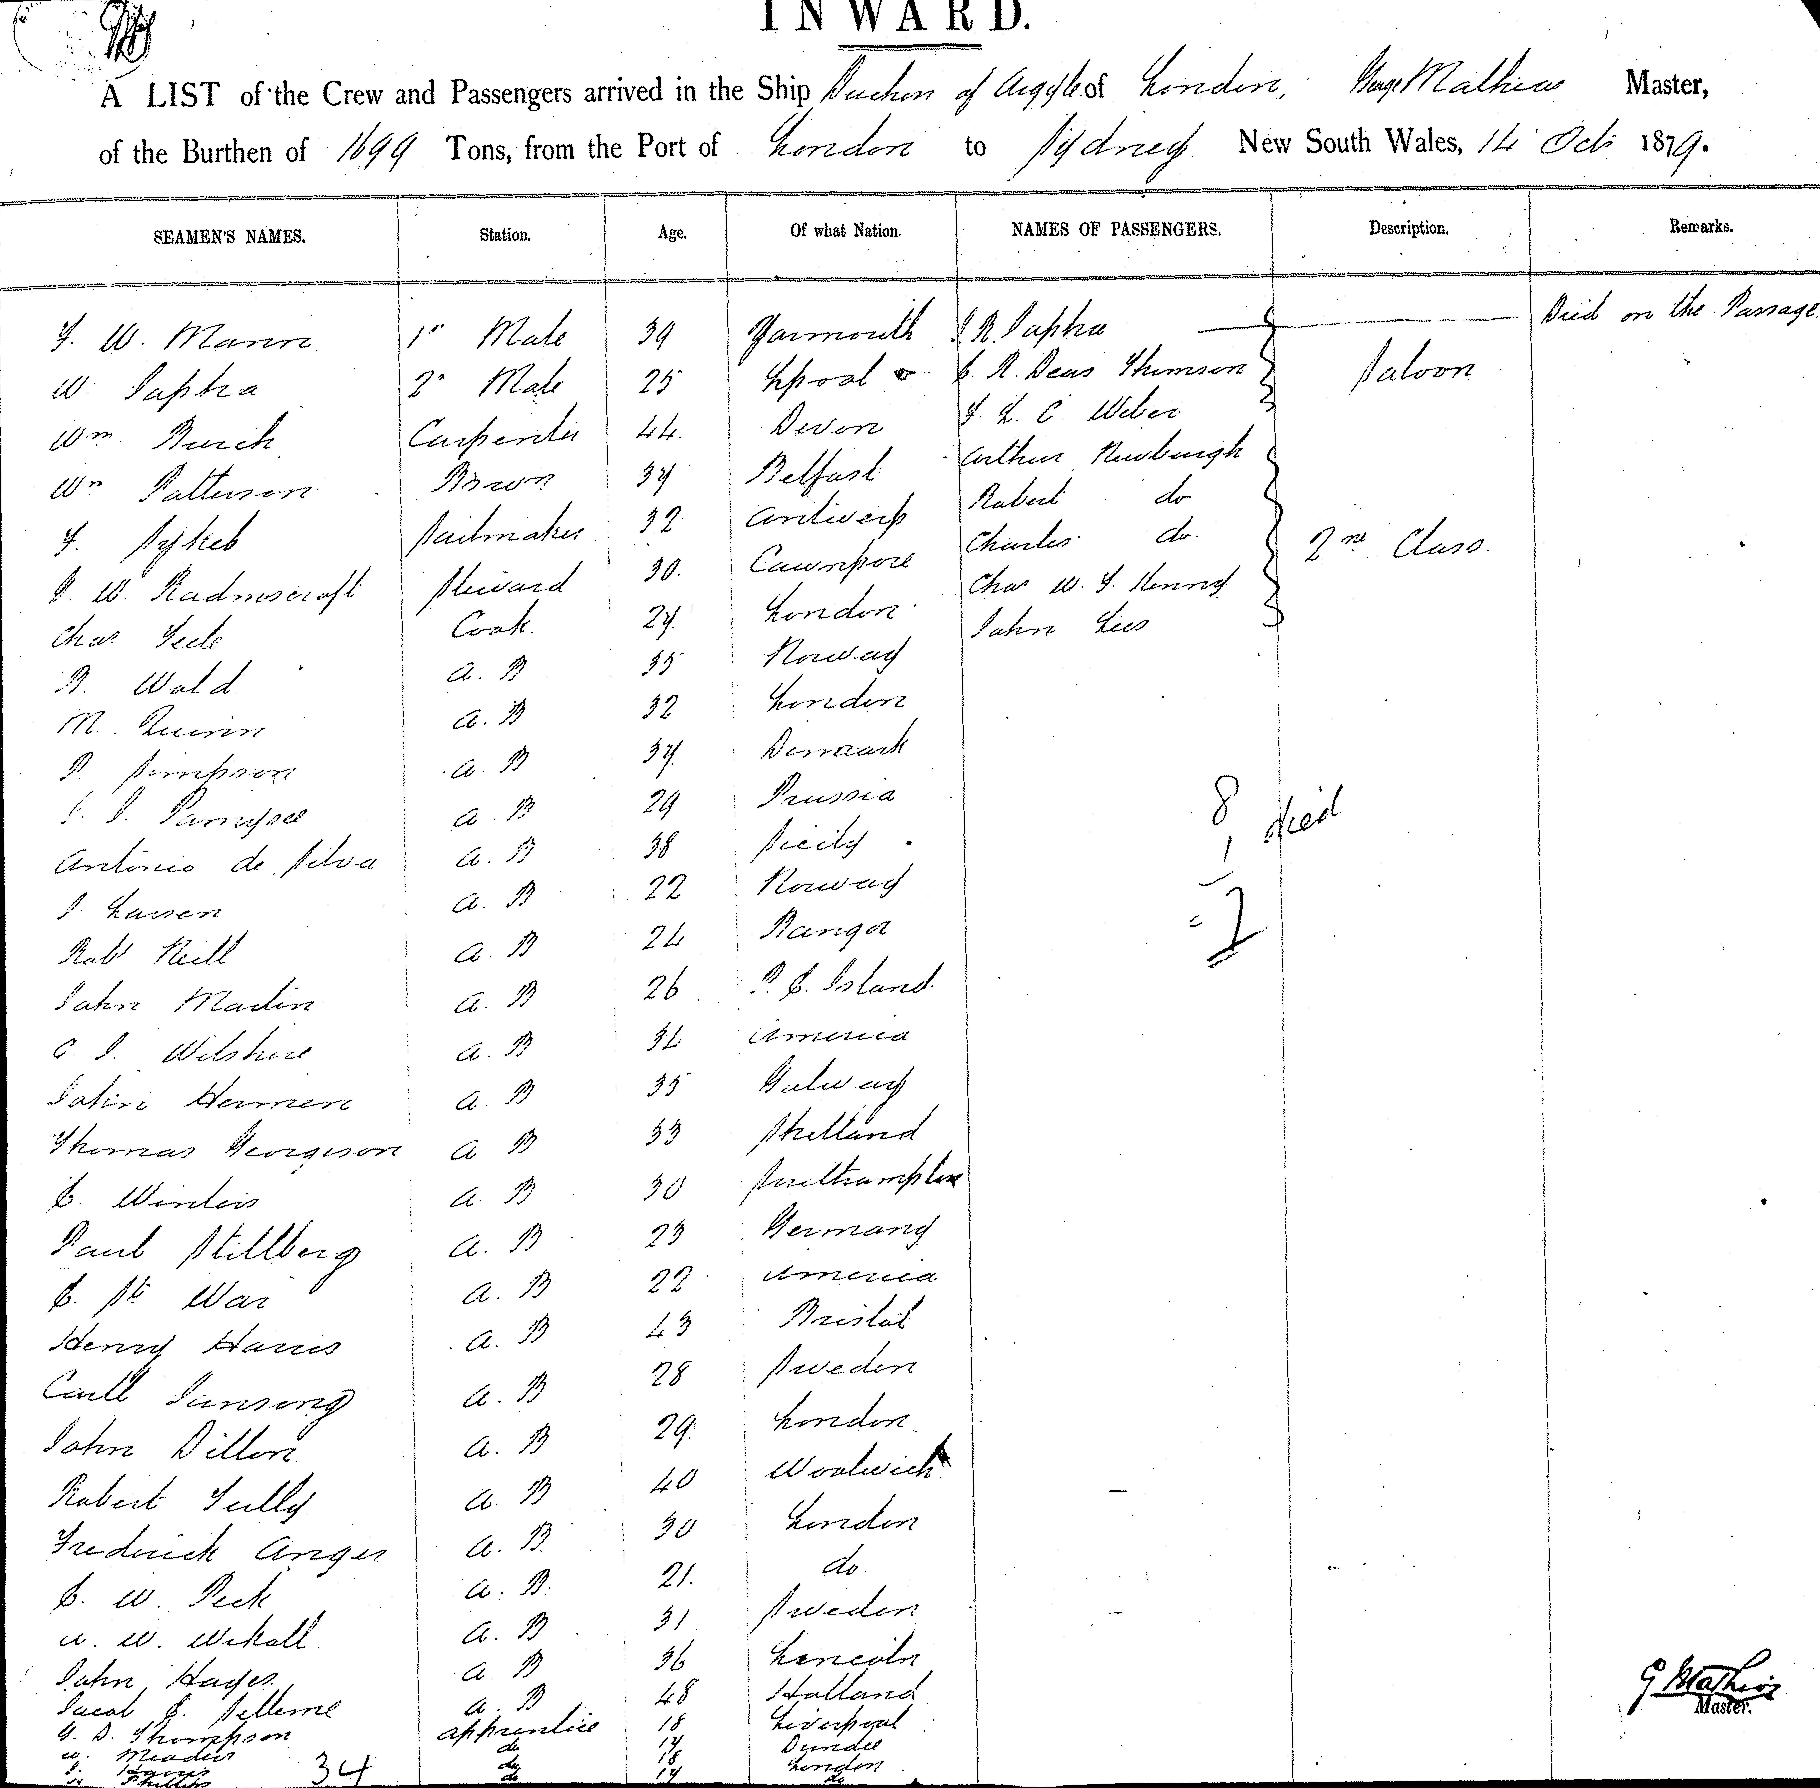 INWARD.
A LIST of the Crew and Passengers arrived in the Ship Duchess of Argyle of London, George Mathieu Master,
of the Burthen of 1699 Tons, from the Port of London to Sydney New South Wales, 14 Oct 1879.
SEAMEN'S NAMES. Station. Age. Of what Nation. NAMES OF PASSENGERS. Description. Remarks.
W. Mann 1st Mate 39 Yarmouth R. Sapha Died on the Passage
W Sapha 2d Mate 25 Lpool R. Deas Thomson Saloon
Wm Burch Carpenter 44 Devon C Weber
Wm Patterson Bosun 34 Belfast Arthur Newburgh
Sailmaker 32 Antwerp Robert do
W. Steward 30. Cawnpore Charles do. 2nd Class.
Chas Cook. London Chas W. Henry
B. Wold A. B 35 Norway John Lees
M. Quinn A. B 32 London
P. Simpson A. B Denmark
A. B 29 Prussia
Antonio de Silva A. B 38 Sicily
Larsen A. B 22 Norway
Robt Neill A. B 24 Bangor
John Martin A. B 26 P. E. Island
C J. Wilshire A. B America
John Hermen A. B 35 Galway
Thomas Georgeson A B 33 Shetland
E. Winters A. B 30 Southampton
Paul Stillberg A. B 23 Germany
E. St War A. B 22 America
Henry Harris A. B 43 Bristol
Carll A. B 28 Sweden
John Dillon A. B 29. London
Robert Tully A. B 40 Woolwich
Frederick Anger A. B. 30 London
E. W. Peck A. B. 21. do
W. A. B 31 Sweden
John Hayes A B 36 Lincoln
Jacob A. B 48 Holland
Thompson Apprentice 18 Liverpool
do Dundee
do 18 London
Phillips do do
34
8
1 died
= 7
G Mathieu
Master.